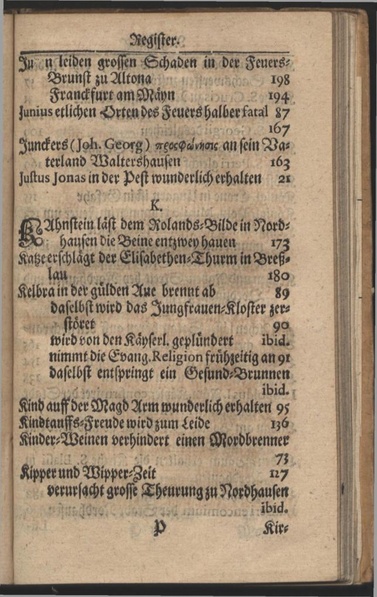 Register.
Ju n leiden grossen Schaden in der Feuers-
Brunst zu Altona 198
Franckfurt am Mäyn 194
Junius etlichen Orten des Feuers halber fatal 87
167
Junckers (Joh. Georg) προσφώνησις an sein Va-
terland Waltershausen 163
Justus Jonas in der Pest wunderlich erhalten 21
K.
KAhnstein läst dem Rolands-Bilde in Nord-
hausen die Beine entzwey hauen 173
Katze erschlägt der Elisabethen-Thurm in Breß-
lau 180
Kelbra in der gülden Aue brennt ab 89
daselbst wird das Jungfrauen-Kloster zer-
störet 90
wird von den Käyserl. geplündert ibid.
nimmt die Evang. Religion frühzeitig an 91
daselbst entspringt ein Gesund-Brunnen
ibid.
Kind auff der Magd Arm wunderlich erhalten 95
Kindtauffs-Freude wird zum Leide 136
Kinder-Weinen verhindert einen Mordbrenner
73
Kipper und Wipper-Zeit 127
verursacht grosse Theurung zu Nordhausen
ibid.
P Kir-